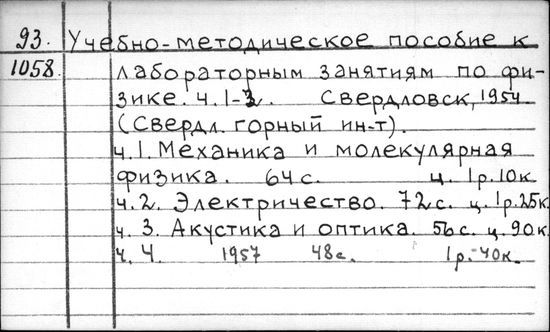 93. Учебно-методическое пособие к
1058. лабораторным занятиям по фи-
зике. ч.1-3. Свердловск, 1954
(Свердл. горный ин-т).
ч.1. Механика и молекулярная
физика. 64с. ц. 1р.10к
ч.2. Электричество. 72с. ц.1р.25к.
ч.3. Акустика и оптика. 56с. ц.90к.
ч.4. 1957 48с. 1р.-40к.